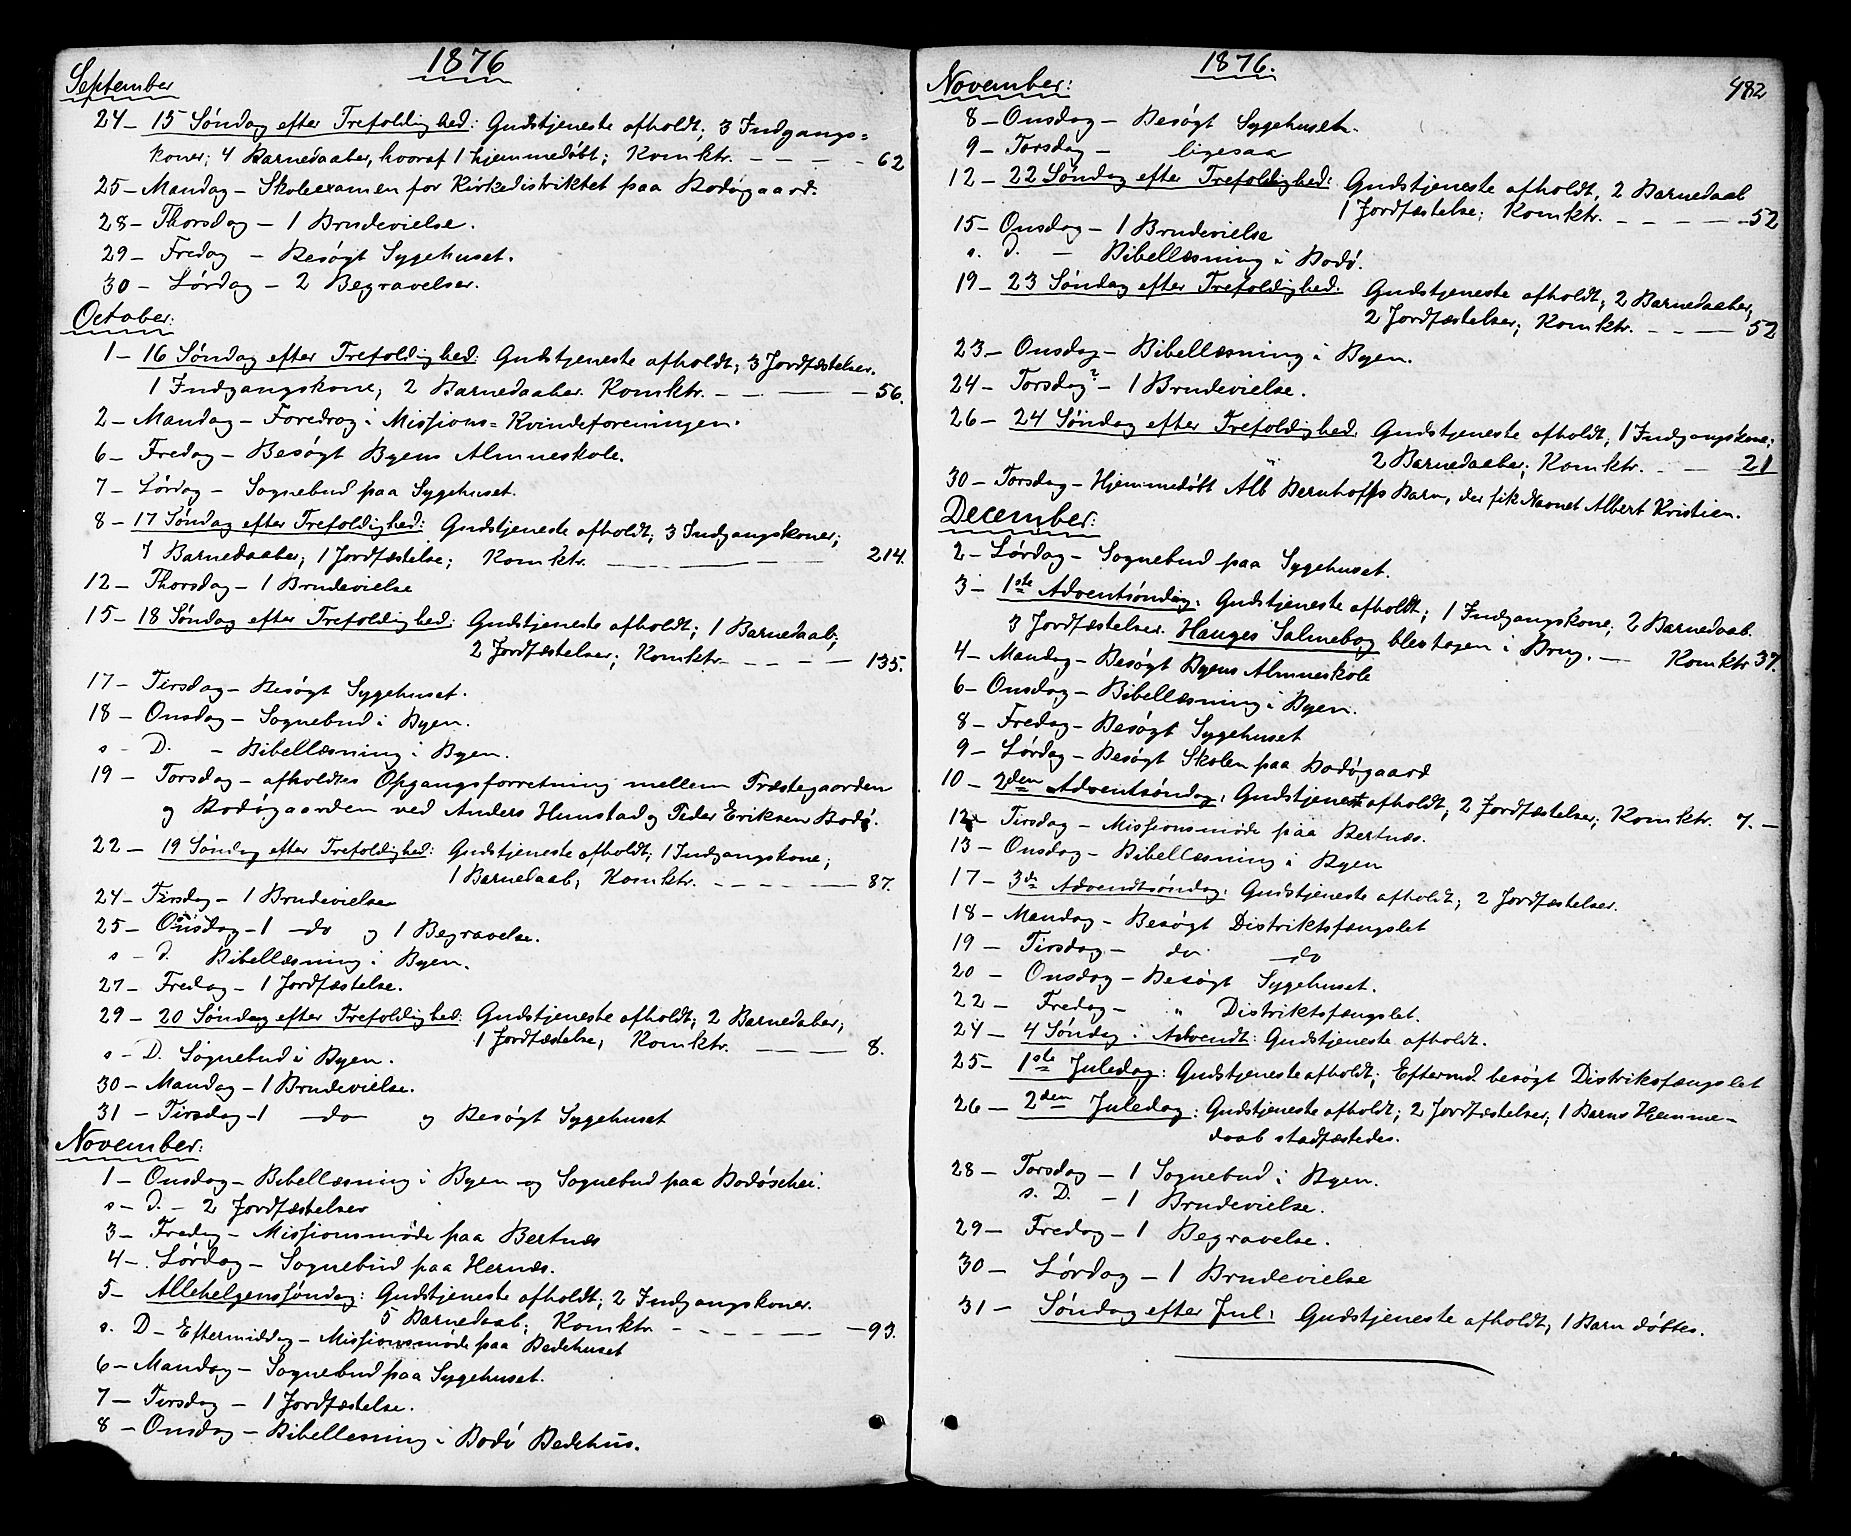 1876
September
24 – 15 Søndag efter Trefoldighed: Gudstjeneste afholdt; 3 Indgangs=
koner; 4 Barnedaaber, hvoraf 1 hjemmedøbt; Komktr. – – – – 62
25 – Mandag – Skoleexamen for Kirkedistriktet paa Bodøgaard.
28 – Thorsdag – 1 Brudevielse.
29 – Fredag – Besøgt Sygehuset.
30 – Lørdag – 2 Begravelser.
October:
1 – 16 Søndag efter Trefoldighed: Gudstjeneste afholdt; 3 Jordfæstelser.
1 Indgangskone; 2 Barnedaaber. Komktr. – – – – 56.
2 – Mandag – Foredrag i Missions=Kvindeforeningen.
6 – Fredag – Besøgt Byens Almueskole.
7 – Lørdag – Sognebud paa Sygehuset.
8 – 17 Søndag efter Trefoldighed: Gudstjeneste afholdt; 3 Indgangskoner;
4 Barnedaaber; 1 Jordfæstelse; Komktr. – – – – 214.
12 – Thorsdag – 1 Brudevielse
15 – 18 Søndag efter Trefoldighed: Gudstjeneste afholdt; 1 Barnedaab;
2 Jordfæstelser; Komktr. – – – – 135.
17 – Tirsdag – Besøgt Sygehuset.
18 – Onsdag – Sognebud i Byen.
s – D. – Bibellæsning i Byen.
19 – Torsdag – afholdtes Opgangsforretning mellem Præstegaarden
og Bodøgaarden ved Anders Hunstad og Peder Eriksen Bodø.
22 – 19 Søndag efter Trefoldighed: Gudstjeneste afholdt; 1 Indgangskone;
1 Barnedaab; Komktr. – – – – 87.
24 – Tirsdag – 1 Brudevielse
25 – Onsdag – 1 do og 1 Begravelse.
s – D. Bibellæsning i Byen.
27 – Fredag – 1 Jordfæstelse.
29 – 20 Søndag efter Trefoldighed: Gudstjeneste afholdt; 2 Barnedaaber;
1 Jordfæstelse; Komktr. – – – – 8.
s – D. Sognebud i Byen.
30 – Mandag – 1 Brudevielse.
31 – Tirsdag – 1 do og Besøgt Sygehuset
November:
1 – Onsdag – Bibellæsning i Byen og Sognebud paa Bodøschei.
s – D. – 2 Jordfæstelser
3 – Fredag – Missionsmøde paa Bertnæs
4 – Lørdag – Sognebud paa Hernæs.
5 – Allehelgenssøndag: Gudstjeneste afholdt; 2 Indgangskoner.
5 Barnedaab; Komktr. – – – – 93.
s. D – Eftermiddag – Missionsmøde paa Bedehuset
6 – Mandag – Sognebud paa Sygehuset.
7 – Tirsdag – 1 Jordfæstelse.
8 – Onsdag – Bibellesning i Bodø Bedehus.
1876.
482
November:
8 – Onsdag – Besøgt Sygehuset.
9 – Torsdag – ligesaa
12 – 22 Søndag efter Trefoldighed: Gudstjeneste afholdt, 2 Barnedaab
1 Jordfæstelse; Komktr. – – – – 52
15 – Onsdag – 1 Brudevielse
s. D. – Bibellæsning i Bodø.
19 – 23 Søndag efter Trefoldighed: Gudstjeneste afholdt; 2 Barnedaaber,
2 Jordfæstelser; Komktr. – – – 52
23 – Onsdag – Bibellæsning i Byen.
24 – Torsdag? – 1 Brudevielse.
26 – 24 Søndag efter Trefoldighed. Gudstjeneste afholdt; 1 Indgangskone;
2 Barnedaaber; Komktr. – – 21
30 – Torsdag – Hjemmedøbt Alb Bernhoffs Barn, der fik Navnet Albert Kristien.
December:
2 – Lørdag – Sognebud paa Sygehuset.
3 – 1ste Adventsøndag: Gudstjeneste afholdt; 1 Indgangskone; 2 Barnedaab.
3 Jordfæstelser. Hauges Salmebog blev tagen i Brug. – Komktr 37.
4 – Mandag – Besøgt Byens Almueskole
6 – Onsdag – Bibellæsning i Byen.
8 – Fredag – Besøgt Sygehuset
9 – Lørdag – Besøgt Skolen paa Bodøgaard
10 – 2den Adventsøndag: Gudstjenest afholdt; 2 Jordfæstelser; Komktr. 7. –
12 – Tirsdag – Missionsmøde paa Bertnæs.
13 – Onsdag – Bibellæsning i Byen
17 – 3de Advendtsøndag: Gudstjeneste afholdt; 2 Jordfæstelser.
18 – Mandag – Besøgt Distriktsfængslet
19 – Tirsdag – do do
20 – Onsdag – Besøgt Sygehuset.
22 – Fredag – " Distriktsfængslet.
24 – 4 Søndag i Advendt: Gudstjeneste afholdt.
25 – 1ste Juledag: Gudstjeneste afholdt; Eftermd. besøgt Distriksfængslet
26 – 2den Juledag: Gudstjeneste afholdt; 2 Jordfæstelser; 1 Barns Hemme–
daab stadfæstedes.
28 – Torsdag – 1 Sognebud i Byen.
s. D. – 1 Brudevielse.
29 – Fredag – 1 Begravelse.
30 – Lørdag – 1 Brudevielse
31 – Søndag efter Jul: Gudstjeneste afholdt; 1 Barn døbtes.